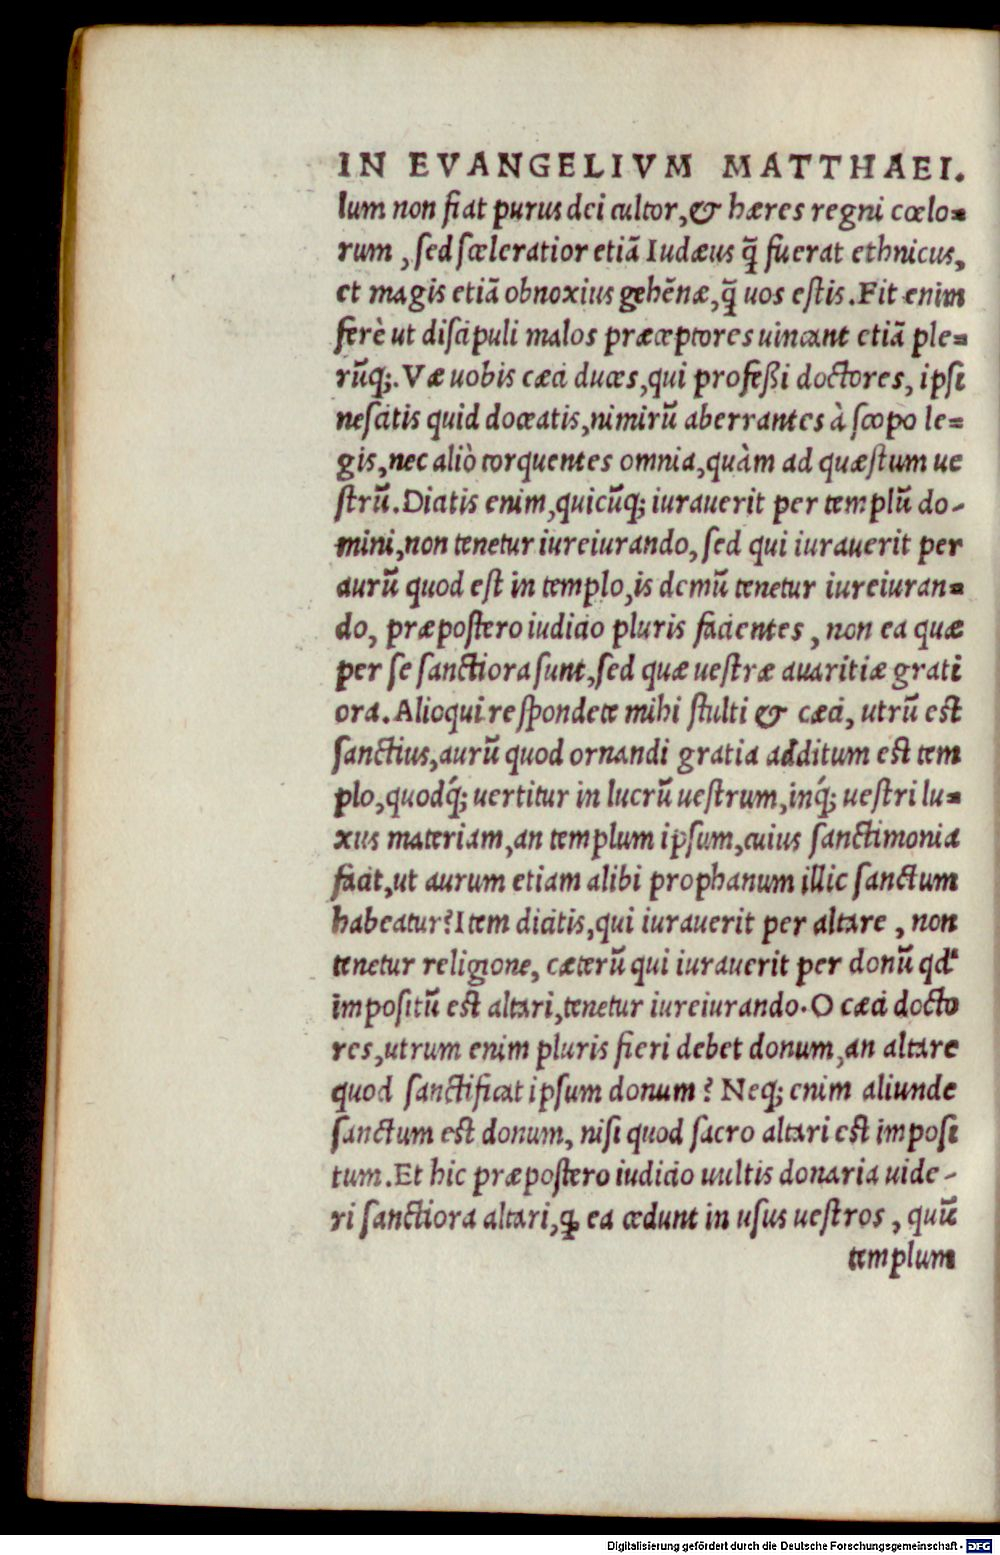 IN EVANGELIVM MATTHAEI.
lum non fiat purus dei cultor,& hæres regni cœlo=
rum , sed sceleratior etiã Iudæus q̃ fuerat ethnicus,
et magis etiã obnoxius gehẽnæ,q̃ uos estis.Fit enim
ferè ut discipuli malos præceptores uincant etiã ple=
rũq;.Væ uobis cæci duces,qui professi doctores, ipsi
nescitis quid doceatis,nimirũ aberrantes à scopo le=
gis,nec aliò torquentes omnia,quàm ad quæstum ue
strũ.Dicitis enim,quicũq; iurauerit per templũ do-
mini,non tenetur iureiurando, sed qui iurauerit per
aurũ quod est in templo,is demũ tenetur iureiuran=
do, præpostero iudicio pluris facientes , non ea quæ
per se sanctiora sunt,sed quæ uestræ auaritiæ grati
ora.Alioqui respondete mihi stulti & cæci, utrũ est
sanctius,aurũ quod ornandi gratia additum est tem
plo,quodq́; uertitur in lucrũ uestrum,inq́; uestri lu=
xus materiam,an templum ipsum,cuius sanctimonia
facit,ut aurum etiam alibi prophanum illic sanctum
habeatur?Item dicitis,qui iurauerit per altare , non
tenetur religione, cæterũ qui iurauerit per donũ qd'
impositũ est altari,tenetur iureiurando.O cæci docto
res,utrum enim pluris fieri debet donum,an altare
quod sanctificat ipsum donum? Neq; enim aliunde
sanctum est donum, nisi quod sacro altari est imposi
tum.Et hic præpostero iudicio uultis donaria uide-
ri sanctiora altari,ꝙ ea cedunt in usus uestros , quũ
templum
Digitalisierung gefördert durch die Deutsche Forschungsgemeinschaft - DFG